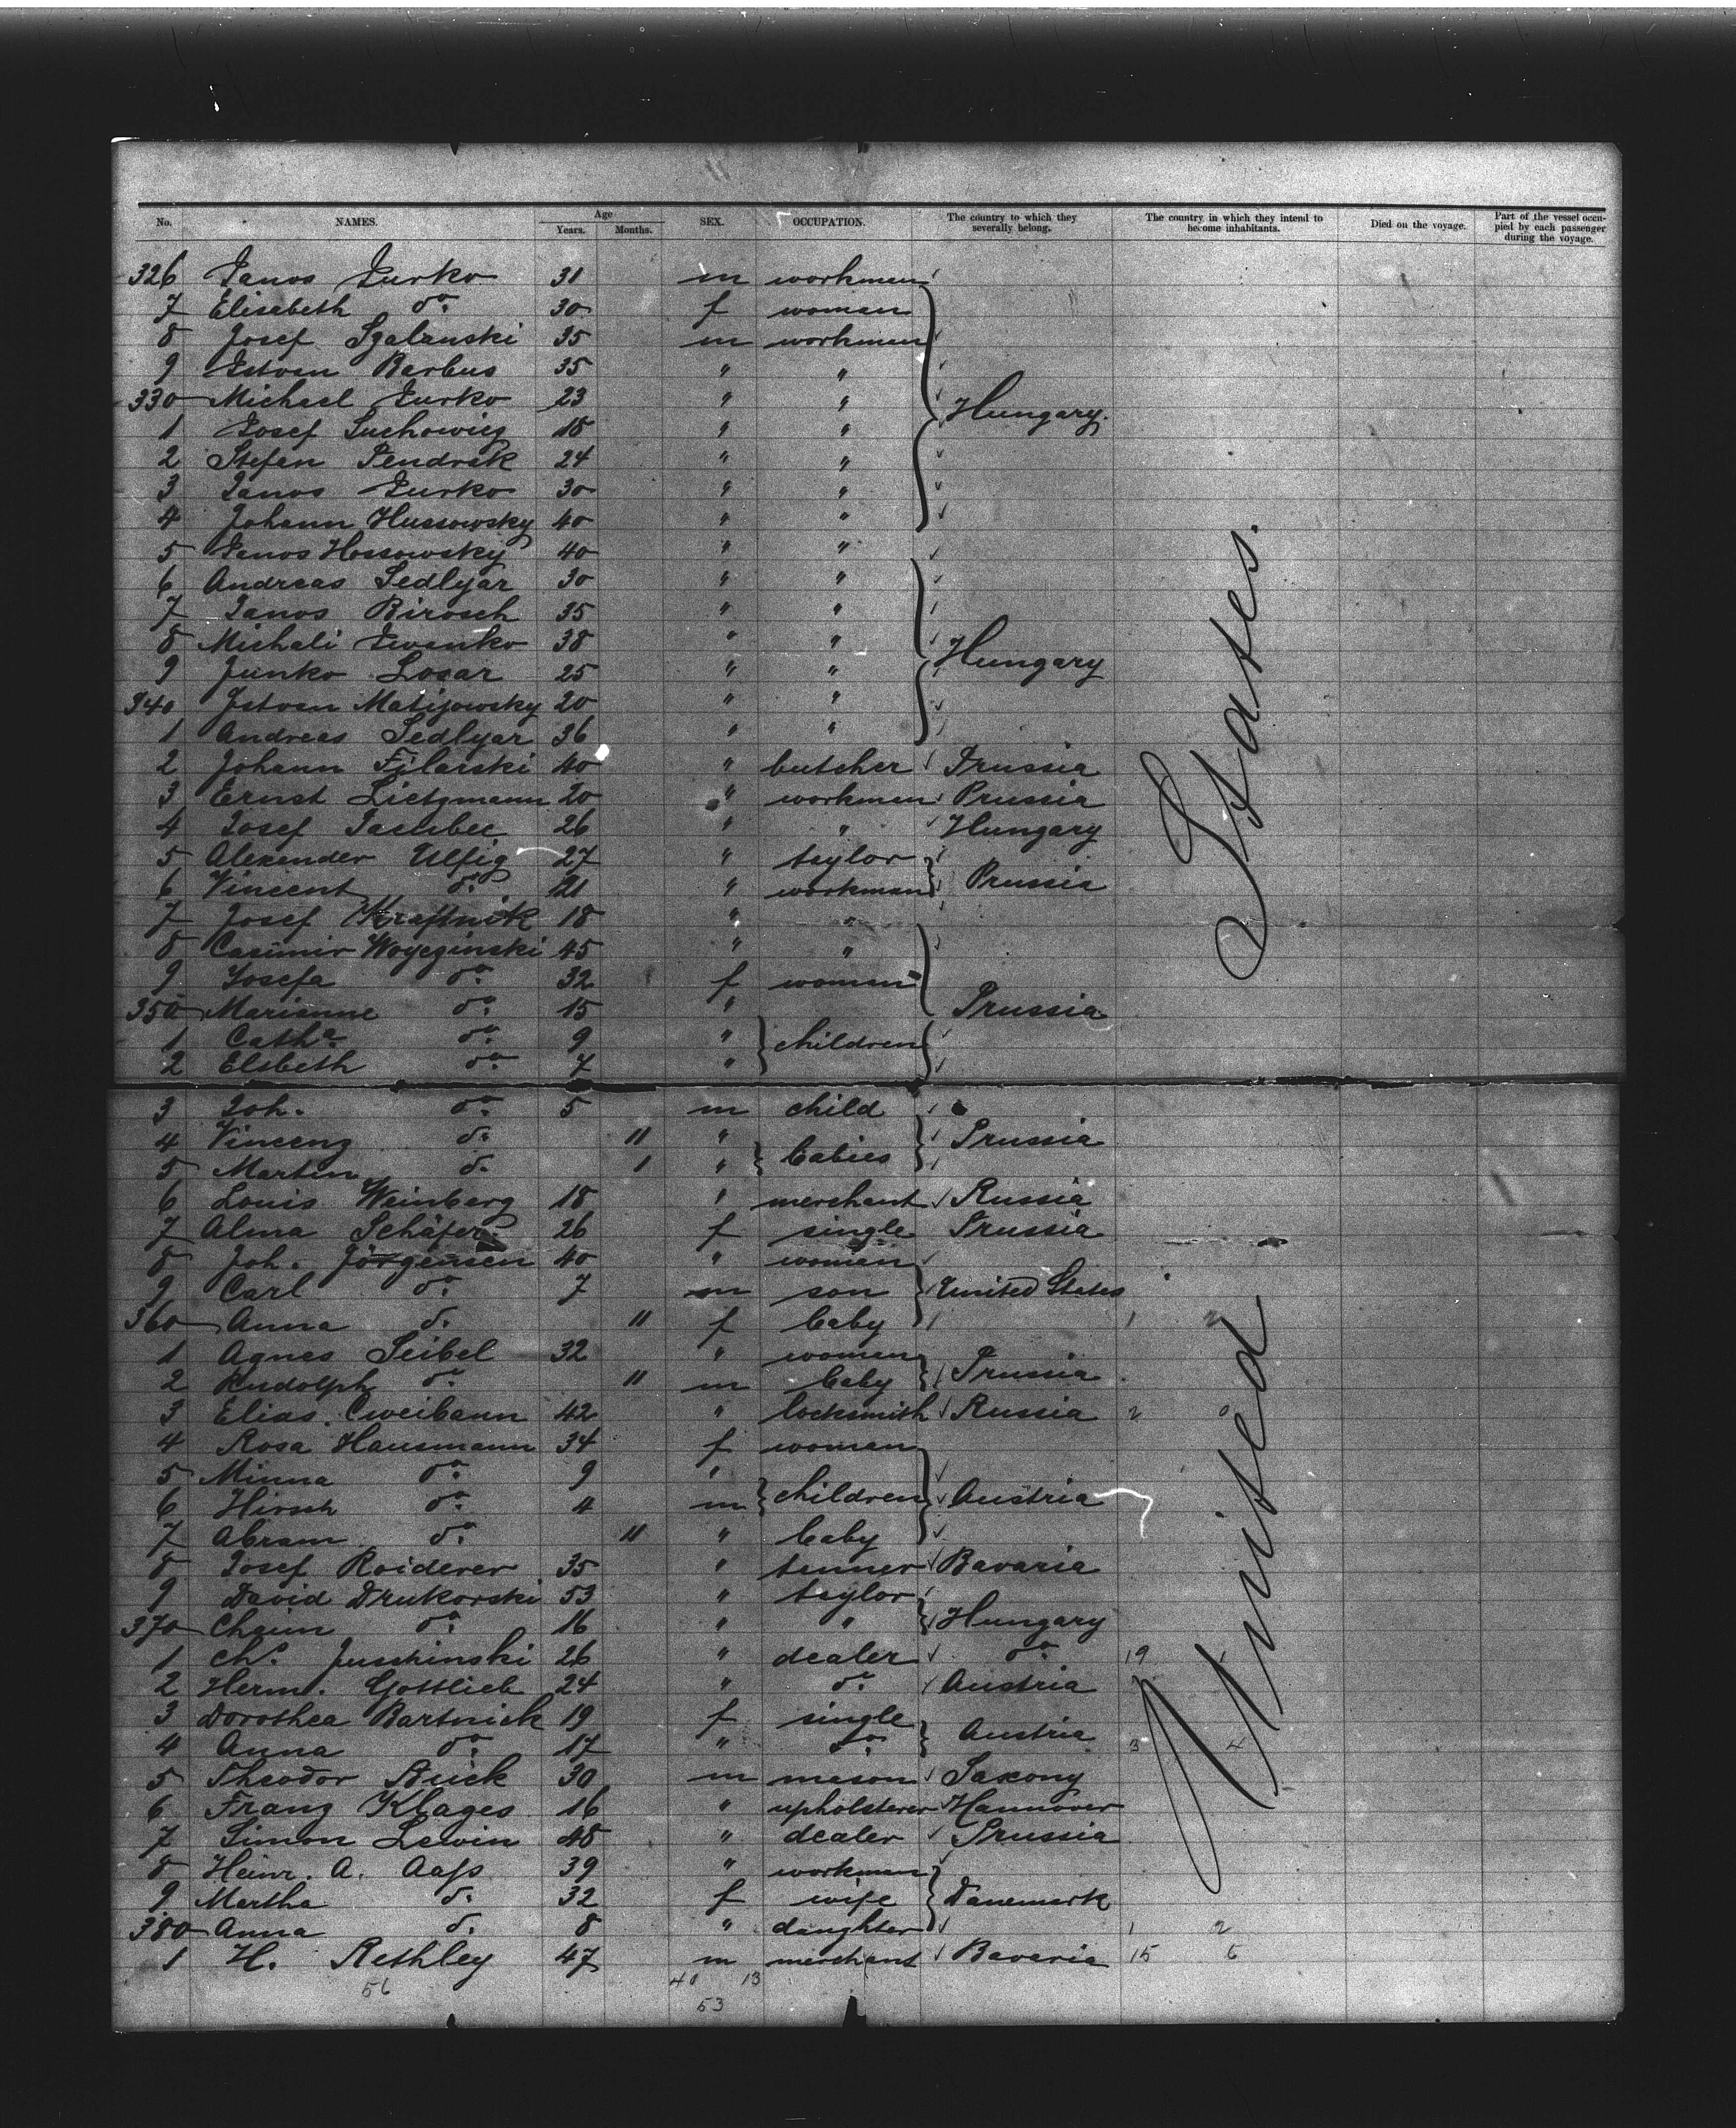 No. NAMES. Age Years. Months. SEX. OCCUPATION. The country to which they severally belong. The country in which they intend to become inhabitants. Died on the voyage. Part of the vessel occupied by each passenger during the voyage.
326 Janos Jurko 31 m workmen
7 Elisabeth do. 30 f woman
8 Josef Szalanski 35 m workmen
9 Istvan Barbus 35 " "
330 Michael Jurko 23 " " Hungary.
1 Josef Suchowicz 18 " "
2 Stefan Pendrak 24 " "
3 Janos Jurko 30 " "
4 Johann Hussowsky 40 " "
5 Janos Hossowsky 40 " "
6 Andreas Sedlyar 30 " "
7 Janos Birosch 35 " "
8 Michali Iwanko 38 " " Hungary
9 Junko Losar 25 " "
340 Istvan Matijowsky 20 " "
1 Andreas Sedlyar 36 " "
2 Johann Filarski 40 " butcher Prussia
3 Ernst Lietzmann 20 " workmen Prussia
4 Josef 26 " " Hungary
5 Alexander Ulfig 27 " taylor
6 Vincent do. 21 " workman Prussia
7 Josef 18 " "
8 Casimir Woyczinski 45 " "
9 Josefa do. 32 f woman
350 Marianne do. 15 " Prussia
1 Catha. do. 9 " children
2 Elsbeth do. 7 "
3 Joh. do. 5 m child
4 Vincenz do. 11 " babies Prussia
5 Martin do. 1 "
6 Louis Weinberg 18 " merchant Russia
7 Alma Schäfer 26 f single Prussia
8 Joh. Jörgensen 40 " women
9 Carl do. 7 m son United States
360 Anna do. 11 f baby 1 2
1 Agnes Seibel 32 " women
2 Rudolph do. 11 m baby Prussia
3 Elias Cweibaun 42 " locksmith Russia 2 0
4 Rosa Hausmann 34 f woman
5 Minna do. 9 "
6 Hirsch do. 4 m children Austria
7 Abram do. 11 " baby
8 Josef Roiderer 35 " tanner Bavaria
9 David Drukorski 53 " taylor
370 Chaim do. 16 " " Hungary
1 Chs. Juschinski 26 " dealer do. 19 1
2 Herm. Gottlieb 24 " do. Austria
3 Dorothea Bartnick 19 f single
4 Anna do. 17 " do. Austria 3 4
5 Theodor Stück 30 m mason Saxony
6 Franz Klages 16 " upholsterer Hannover
7 Simon Lewin 48 " dealer Prussia
8 Heinr. A. Aass 39 " workman
9 Martha do. 32 f wife Danemark
380 Anna do. 8 " daughter 1 2
1 H. Rethley 47 m merchant Bavaria 15 6
56 40 13
53
United States.